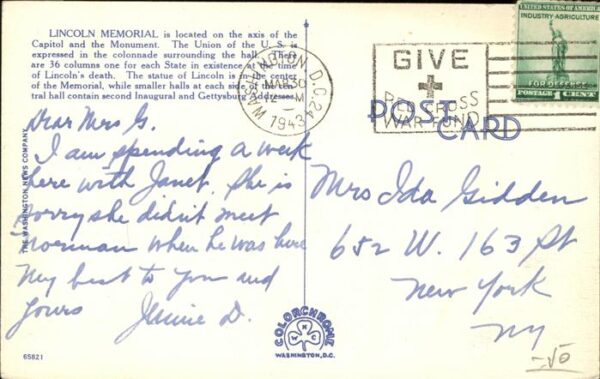 LINCOLN MEMORIAL is located on the axis of the
Capitol and the Monument. The Union of the U. S. is
expressed in the colonnade surrounding the hall. There
are 36 columns one for each State in existence at the time
of Lincoln's death. The statue of Lincoln is in the center
of the Memorial, while smaller halls at each side of the cen-
tral hall contain second Inaugural and Gettysburg Addresses.
WASHINGTON, D.C. 24
MAR 30
12 M
1943
GIVE
RED CROSS
WAR FUND
UNITED STATES OF AMERICA
INDUSTRY AGRICULTURE
FOR DEFENSE
POSTAGE 1 CENT
POST
CARD
Dear Mrs G.
I am spending a week
here with Janet. She is
sorry she didn't meet
Norman when he was here
My best to you and
yours Jennie D.
Mrs Ida Gidden
652 W. 163 St
New York
NY
THE WASHINGTON NEWS COMPANY
COLORCHROME
WASHINGTON, D.C.
65821